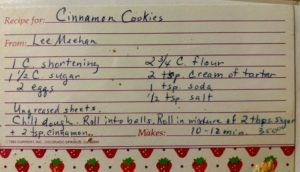 Recipe for: Cinnamon Cookies
From: Lee Meehan
1 C. shortening
1 1/2 C. sugar
2 eggs
2 3/4 C. flour
2 tsp. cream of tartar
1 tsp. soda
1/2 tsp salt
Ungreased sheets.
Chill dough. Roll into balls. Roll in mixture of 2 tbps. sugar
+ 2 tsp. cinnamon. Makes: 10-12 min.